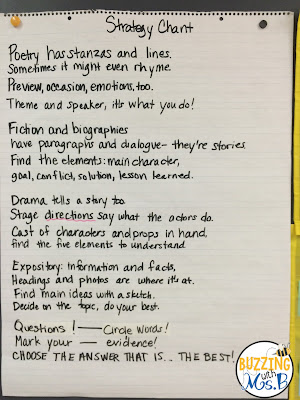 Strategy Chant
Poetry has stanzas and lines.
Sometimes it might even rhyme.
Preview, occasion, emotions, too.
Theme and speaker, it's what you do!
Fiction and biographies
have paragraphs and dialogue- they're stories.
Find the elements: main character,
goal, conflict, solution, lesson learned.
Drama tells a story too.
Stage directions say what the actors do.
Cast of characters and props in hand,
find the five elements to understand.
Expository: Information and facts,
Headings and photos are where it's at.
Find main ideas with a sketch.
Decide on the topic, do your best.
Questions! — Circle Words!
Mark your — evidence!
CHOOSE THE ANSWER THAT IS... THE BEST!
BUZZING
with
Ms. B